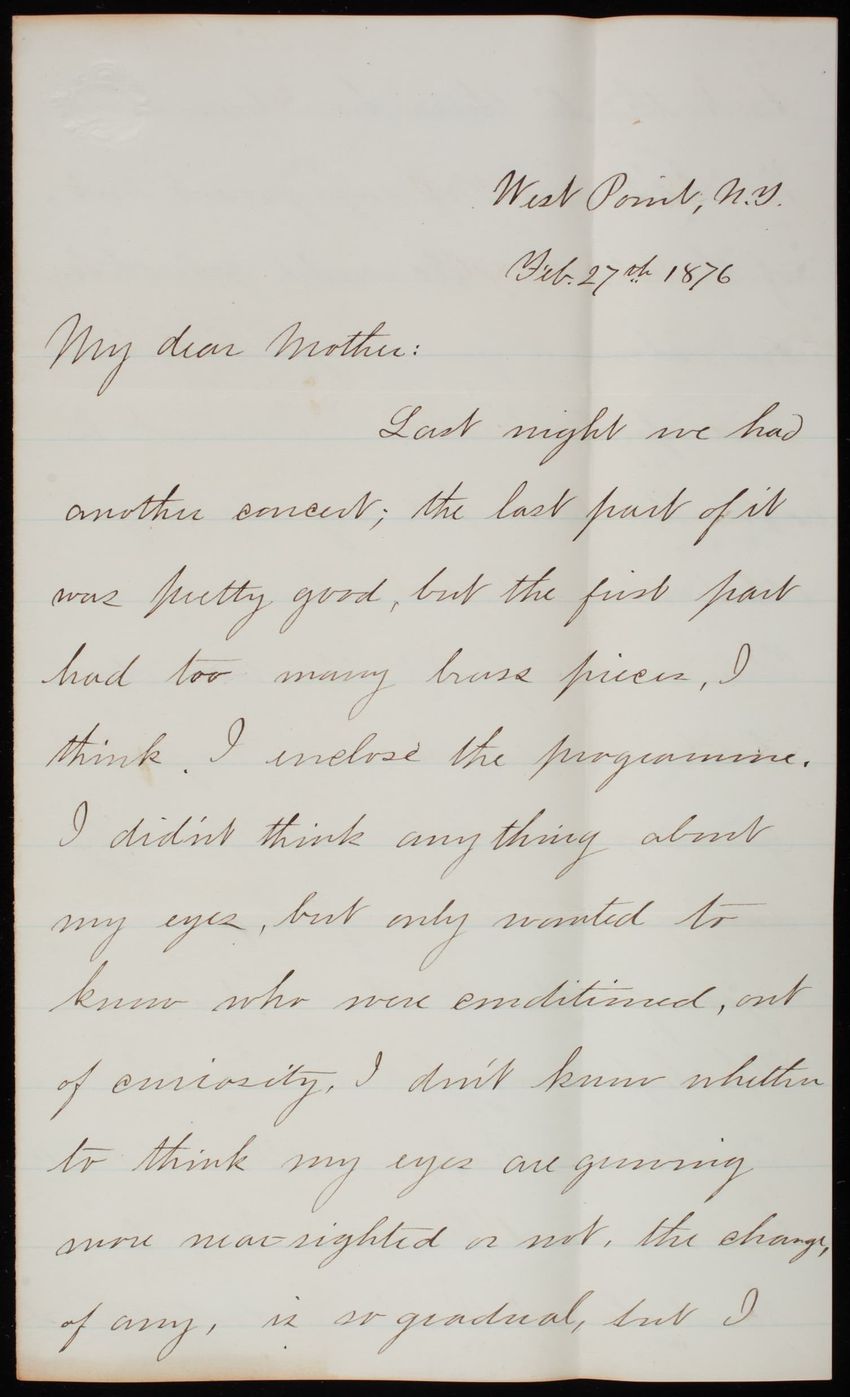 West Point, N.Y.
Feb. 27th 1876
My dear Mother:
Last night we had
another concert; the last part of it
was pretty good, but the first part
had too many brass pieces, I
think. I enclose the programme.
I did'nt think anything about
my eyes, but only wanted to
know who were conditioned, out
of curiosity, I don't know whether
to think my eyes are growing
more near-sighted or not, the change,
if any, is so gradual, but I